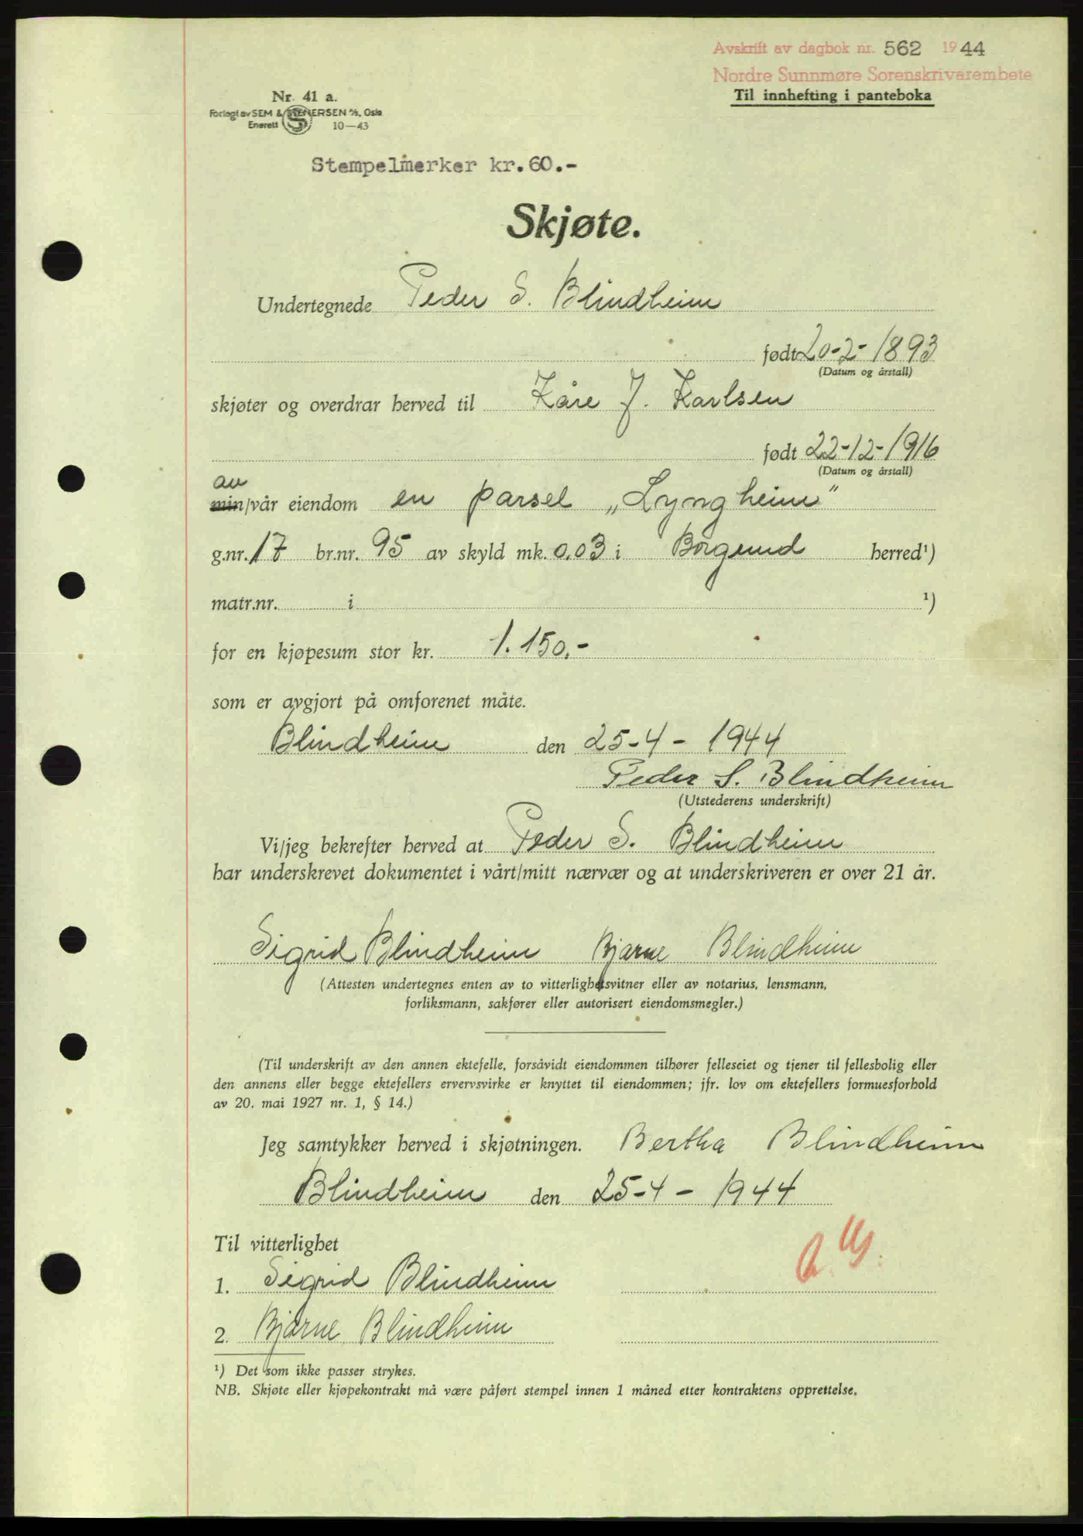 Avskrift av dagbok nr. 562 1944
Nordre Sunnmøre Sorenskrivarembete
Til innhefting i panteboka
Nr. 41 a.
Forlagt av SEM & STENERSEN A/S, Oslo
Enerett 10—43
Stempelmerker kr.60.-
Skjøte.
Undertegnede Peder S. Blindheim
født 20-2-1893
(Datum og årstall)
skjøter og overdrar herved til Kåre J. Karlsen
født 22-12-1916
(Datum og årstall)
av
min/vår eiendom en parsel „Lyngheim"
g.nr. 17 br.nr. 95 av skyld mk. 0.03 i Borgund herred¹)
matr.nr. i ¹)
for en kjøpesum stor kr. 1.150.-
som er avgjort på omforenet måte.
Blindheim den 25-4-1944
Peder S. Blindheim
(Utstederens underskrift)
Vi/jeg bekrefter herved at Peder S. Blindheim
har underskrevet dokumentet i vårt/mitt nærvær og at underskriveren er over 21 år.
Sigrid Blindheim Bjarne Blindheim
(Attesten undertegnes enten av to vitterlighetsvitner eller av notarius, lensmann,
forliksmann, sakfører eller autorisert eiendomsmegler.)
(Til underskrift av den annen ektefelle, forsåvidt eiendommen tilhører felleseiet og tjener til fellesbolig eller
den annens eller begge ektefellers ervervsvirke er knyttet til eiendommen; jfr. lov om ektefellers formuesforhold
av 20. mai 1927 nr. 1, § 14.)
Jeg samtykker herved i skjøtningen. Bertha Blindheim
Blindheim den 25-4-1944
Til vitterlighet
1. Sigrid Blindheim
2. Bjarne Blindheim
¹) Det som ikke passer strykes.
NB. Skjøte eller kjøpekontrakt må være påført stempel innen 1 måned etter kontraktens opprettelse.